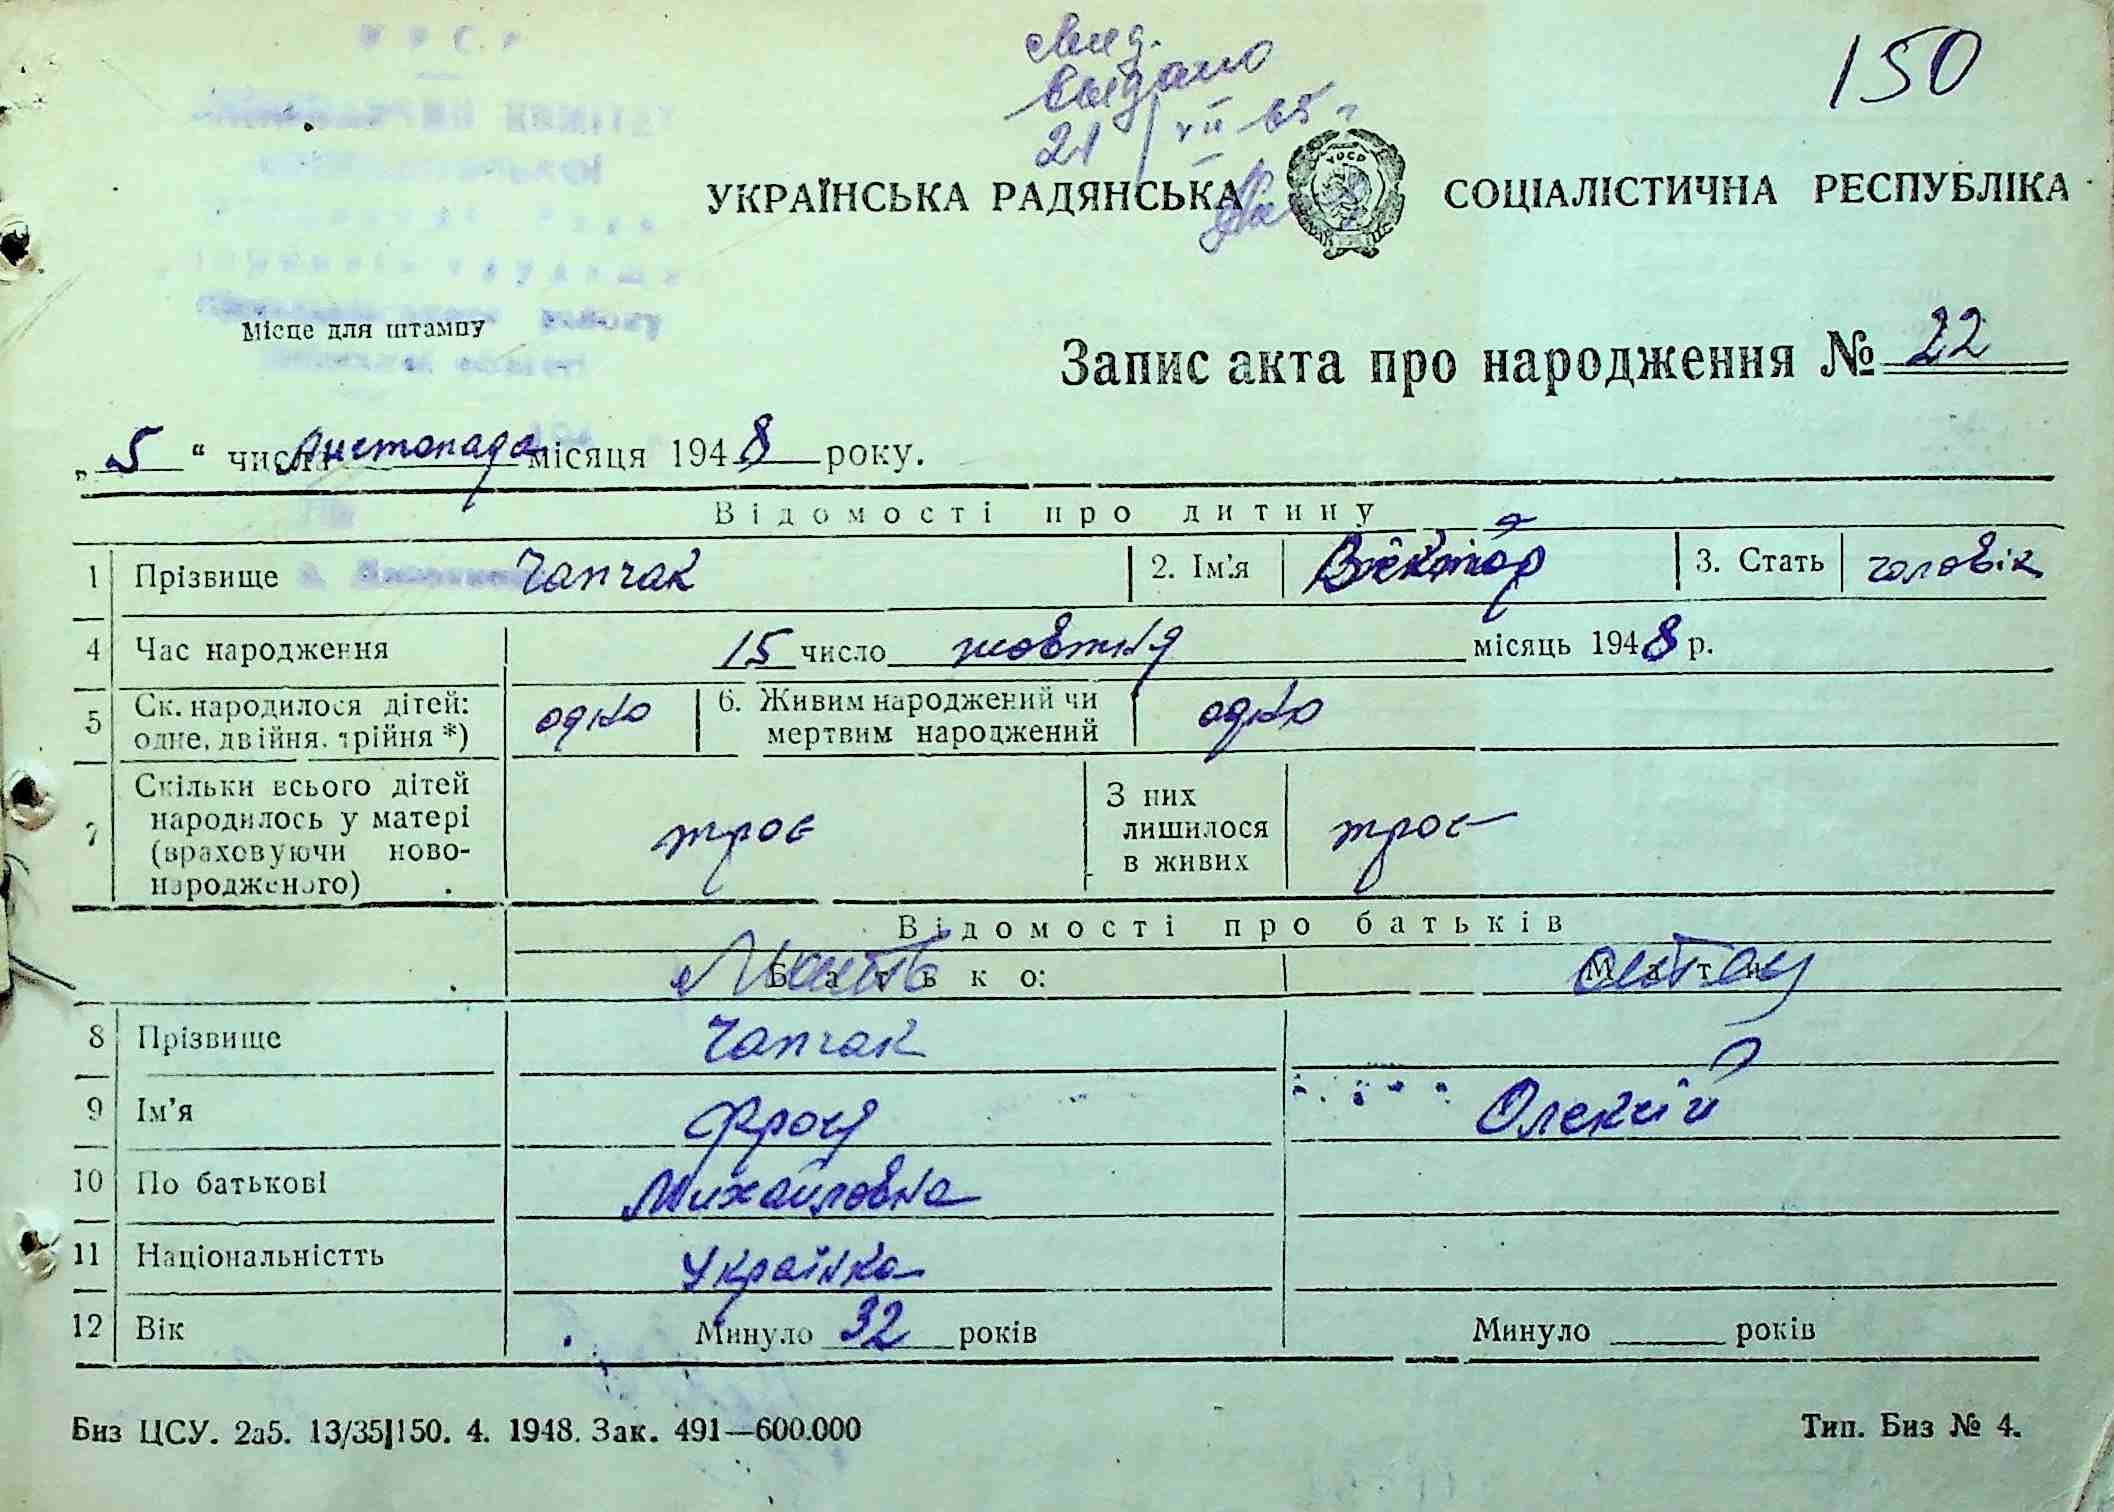 видано
21/VII 65 г
150
УКРАЇНСЬКА РАДЯНСЬКА СОЦІАЛІСТИЧНА РЕСПУБЛІКА
УРСР
Місце для штампу
Запис акта про народження № 22
„5“ числа листопада місяця 1948 року.
Відомості про дитину
1 Прізвище Чапчак 2. Ім'я Віктор 3. Стать чоловік
4 Час народження 15 число жовтня місяць 1948 р.
5 Ск. народилося дітей: одне, двійня, трійня *) одно 6. Живим народжений чи мертвим народжений одно
7 Скільки всього дітей народилось у матері (враховуючи новонародженого) троє З них лишилося в живих троє
Відомості про батьків
Батько: Мати
8 Прізвище Чапчак
9 Ім'я Олексій
10 По батькові Михайловна
11 Національністть Українка
12 Вік Минуло 32 років Минуло років
Биз ЦСУ. 2а5. 13/35|150. 4. 1948. Зак. 491—600.000 Тип. Биз № 4.